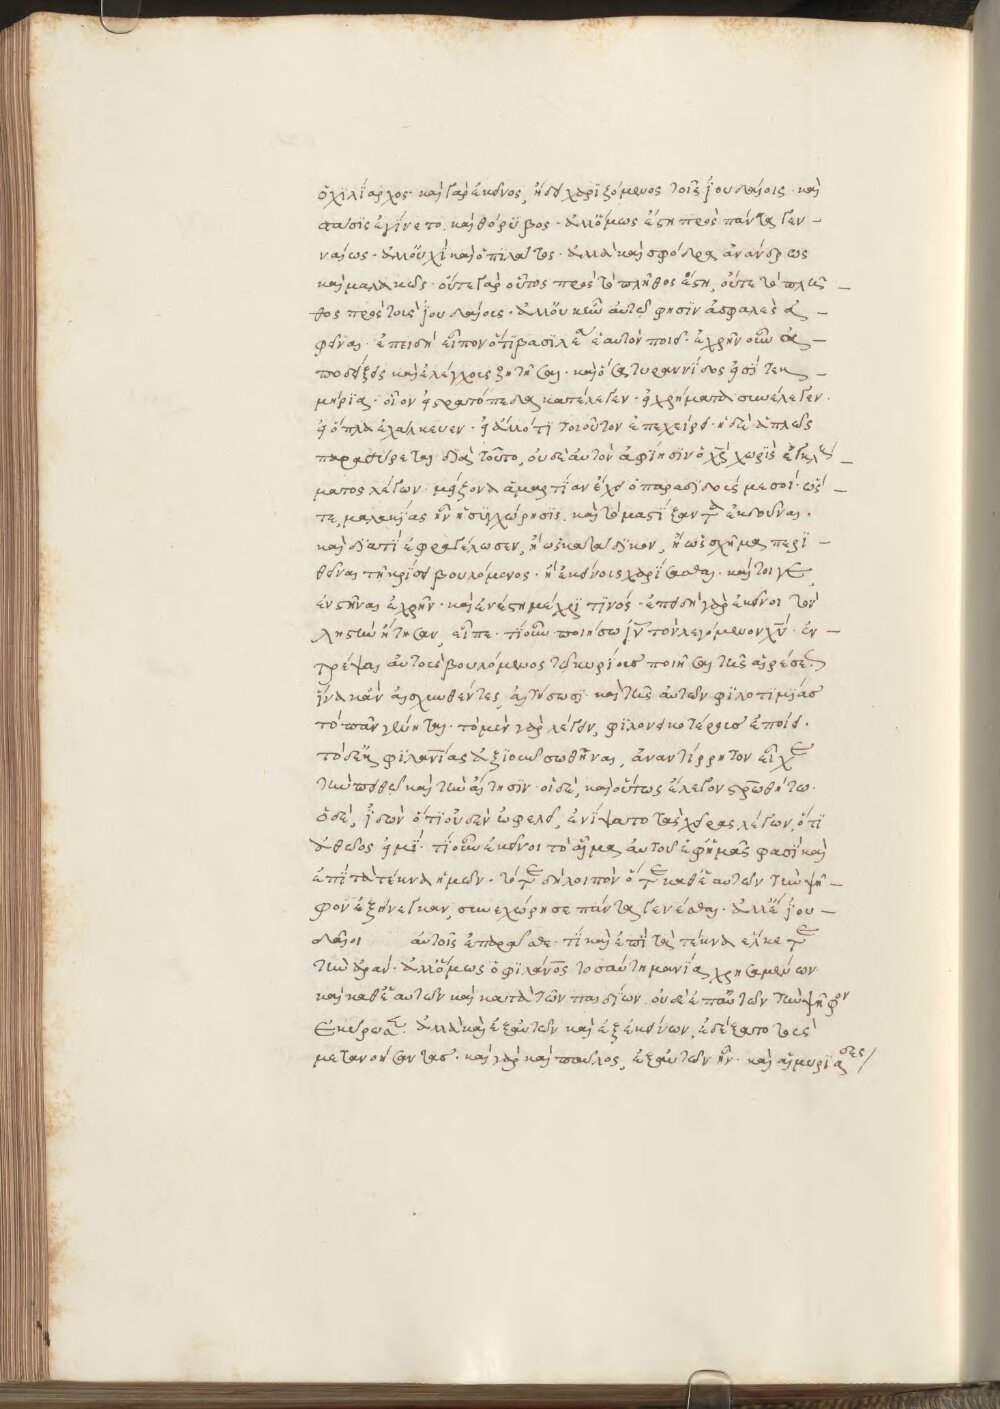 ὁ χιλίαρχος· καὶ γὰρ ἐκεῖνος, ἦν χαριζόμενος τοῖς ἰουδαίοις· καὶ
στάσις ἐγίνετο καὶ θόρυβος· ἀλλ' ὅμως ἔστη πρὸς πάντα γεν-
ναίως· ἀλλ' οὐχὶ καὶ ὁ πιλάτος· ἀλλὰ καὶ σφόδρα ἀνάνδρως
καὶ μαλακῶς· οὔτε γὰρ οὗτος πρὸς τὸ πλῆθος ἔστη, οὔτε τὸ πλῆ-
θος πρὸς τοὺς ἰουδαίους· ἀλλ' οὐκ ἦν αὐτῷ φησὶν ἀσφαλὲς ἀ-
φεῖναι· ἐπειδὴ εἶπον ὅτι βασιλέα ἑαυτὸν ποιεῖ· ἐχρῆν οὖν ἀ-
ποδείξεις καὶ ἐλέγχους ζητῆσαι· καὶ ὅσα τυραννίδος ἐστὶ τεκ-
μήρια· οἷον εἰ στρατόπεδα κατέλεγεν· εἰ χρήματα συνέλεγεν·
εἰ ὅπλα ἐχάλκευεν· εἰ ἄλλό τι τοιοῦτον ἐπεχείρει· ἁπλῶς
παρασύρεται· διὰ τοῦτο, οὐδὲ αὐτὸν ἀφίησιν ὁ χς χωρὶς ἐγκλή-
ματος λέγων· μείζονα ἁμαρτίαν ἔχει ὁ παραδιδούς με σοί· ὥσ-
τε, μαλακίας ἦν ἡ συγχώρησις καὶ τὸ μαστίξαντα ἐκδοῦναι·
καὶ διατί ἐφραγέλωσεν, ἢ ὡς κατάδικον, ἢ ὡς σχῆμα περι-
θεῖναι τῇ κρίσει βουλόμενος· ἢ ἐκείνοις χαρίσασθαι· καίτοιγε
ἐνστῆναι ἐχρῆν· καὶ ἐνέστη μέχρί τινός· ἐπειδὴ γὰρ ἐκεῖνοι τὸν
λῃστὴν ᾔτησαν, εἶπε· τί οὖν ποιήσω ιν τὸν λεγόμενον χν· ἐν-
τρέψαι αὐτοὺς βουλόμενος τῷ κυρίους ποιῆσαι τῆς αἱρέσεως
ἵνα κἂν αἰσχυνθέντες, αἰτήσωσι· καὶ τῆς αὐτῶν φιλοτιμίας
τὸ πᾶν γένηται· τὸ μὲν γὰρ λέγειν, φιλονεικοτέρους ἐποίει·
τὸ δὲ φιλανίας ἀξιοῦν σωθῆναι, ἀναντίρρητον εἶχε
τὴν πειθὼ καὶ τὴν αἴτησιν· οἱ δὲ, καὶ οὕτως ἔλεγον στρωθήτω·
ὁ δὲ, ἰδὼν ὅτι οὐδὲν ὠφελεῖ, ἐνίψατο τὰς χεῖρας λέγων, ὅτι
ἀθῷός εἰμι· τί οὖν ἐκεῖνοι τὸ αἷμα αὐτοῦ ἐφ' ἡμᾶς φασὶ καὶ
ἐπὶ τὰ τέκνα ἡμῶν· τότε δὴ λοιπὸν ὅτε καθ' ἑαυτῶν τὴν ψῆ-
φον ἐξήνεγκαν, συνεχώρησε πάντα γενέσθαι· ἰου-
δαῖοι αὐτοῖς ἐπαρᾶσθε· τί καὶ ἐπὶ τὰ τέκνα εἵλκετε
τὴν ἀράν· ἀλλ' ὅμως ὁ φιλάνος τοσαύτῃ μανίᾳ χρησαμένων
καὶ καθ' ἑαυτῶν καὶ κατὰ τῶν παιδίων, οὐδὲ ἐπ' αὐτῶν τὴν ψῆφον
ἐκύρωσεν· ἀλλὰ καὶ ἐξ αὐτῶν καὶ ἐξ ἐκείνων, ἐδέξατο τοὺς
μετανοήσαντας· καὶ γὰρ καὶ παῦλος, ἐξ αὐτῶν ἦν· καὶ αἱ μυριάδες